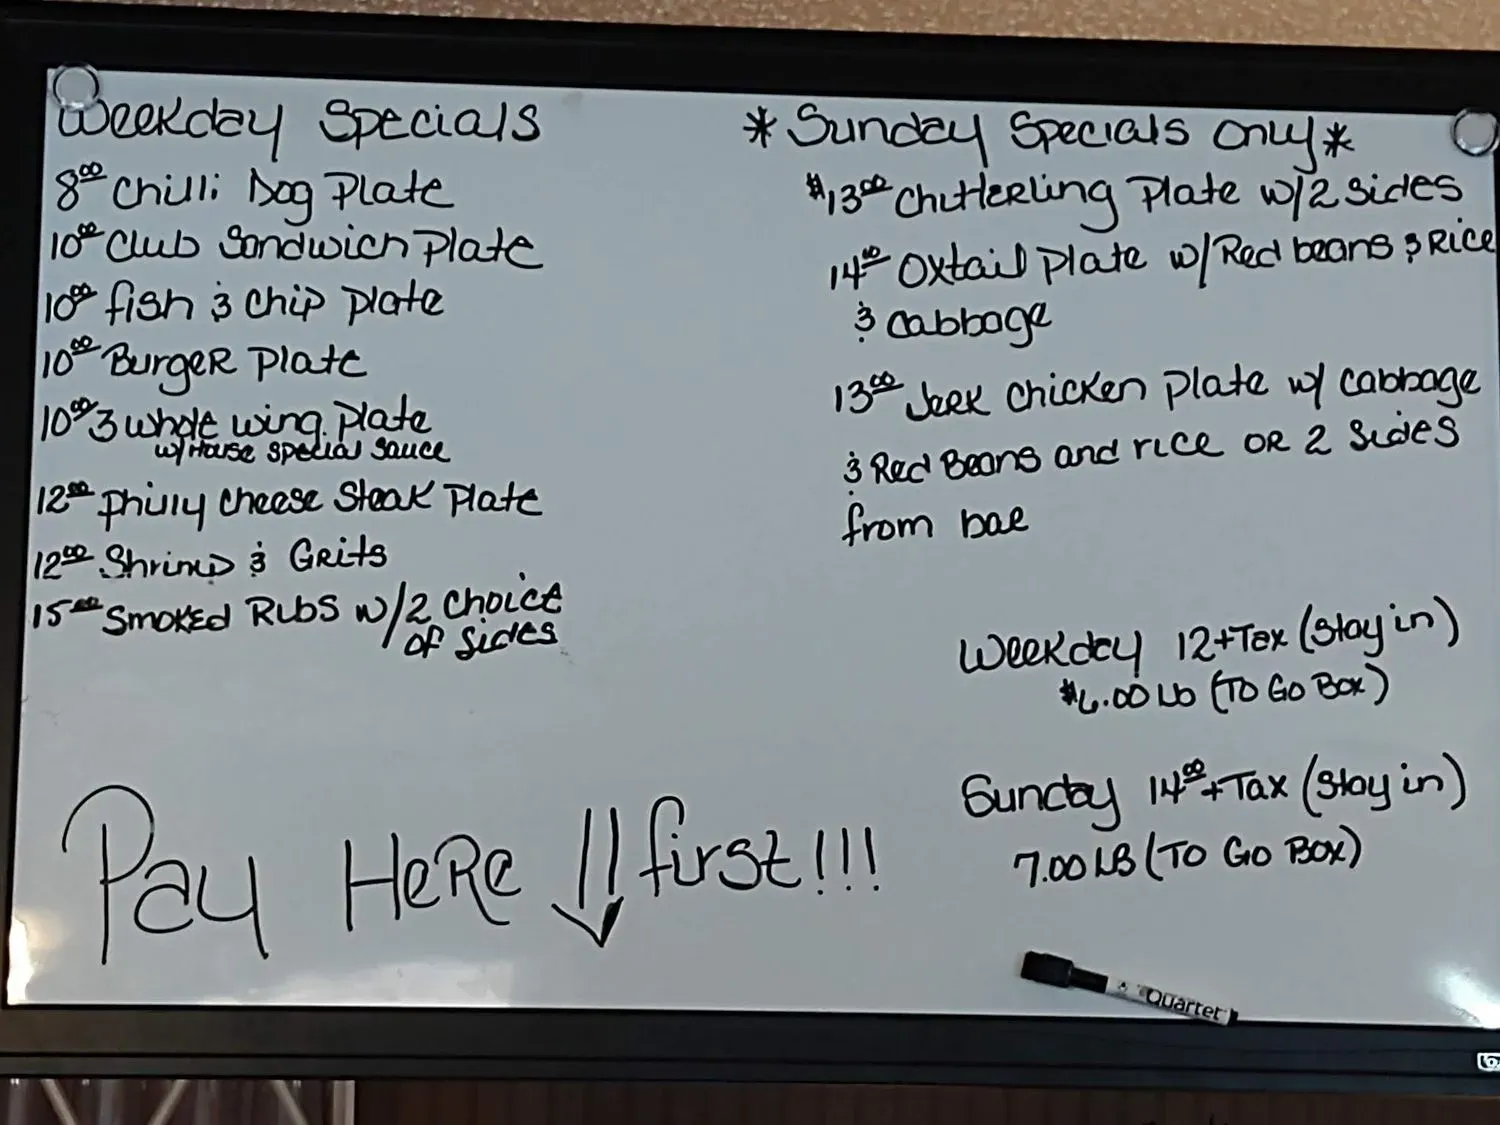 Weekday Specials
8⁰⁰ Chilli Dog Plate
10⁰⁰ Club Sandwich Plate
10⁰⁰ fish & Chip Plate
10⁰⁰ Burger Plate
10⁰⁰ 3 whole wing Plate
w/ House special sauce
12⁰⁰ philly cheese steak Plate
12⁰⁰ Shrimp & Grits
15⁰⁰ Smoked Ribs w/2 choice
of sides
*Sunday Specials only*
$13⁰⁰ Chitterling Plate w/2 sides
14⁰⁰ Oxtail Plate w/Red beans & Rice
& cabbage
13⁰⁰ Jerk chicken Plate w/ cabbage
& Red Beans and rice OR 2 Sides
from bae
Weekday 12+Tax (Stay in)
$6.00 Lb (TO GO BOX)
Sunday 14⁰⁰+Tax (Stay in)
7.00 LB (TO GO BOX)
Pay HeRe first!!!
Quartet